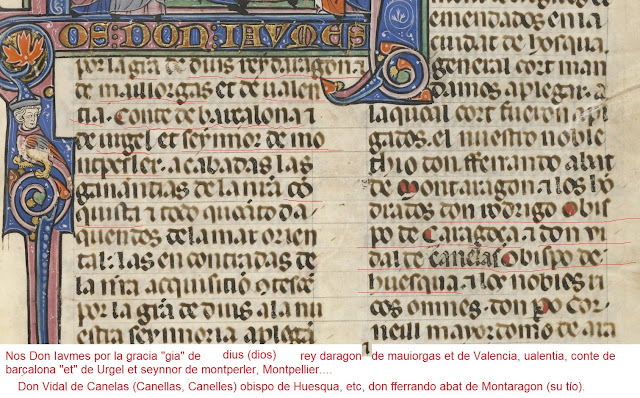 OS DON IAUMES
por la gra de dius rey daragon ⁊
de mauiorgas et de ualen
tia. Conte de barcalona ⁊
de urgel et seynnor de mo
ntperler. acabadas las
ganantias de la nra co
quista ⁊ todo da
de la mar orien
tal: las encontradas de
la nra
por la gra de dius ala nu
estra seynnoria aplega
emendados en la
ciudat de hosqua.
general cort man
damos aplegar. a
la qual cort fueron aple
gados. el nuestro noble
thio don fferrando abat
de Montaragon ⁊ los ho
drados don rodrigo Obis
po de Caragoça ⁊ don vi
dal de canelas Obispo de
huesqua. ⁊ los nobles ri
cos omnes. don po cor
neill mayordomo de ara
Nos Don Iavmes por la gracia "gia" de dius (dios) rey daragon 1 de mauiorgas et de Valencia, ualentia, conte de
barçalona "et" de Urgel et seynnor de montperler, Montpellier....
Don Vidal de Canelas (Canellas, Canelles) obispo de Huesqua, etc, don fferrando abat de Montaragon (su tío).